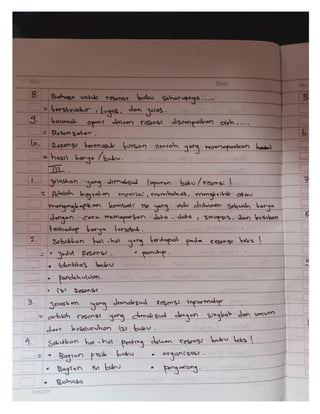 No:
Date:
8. Bahasa untuk resensi buku seharusnya.....
= terstruktur, lugas, dan jelas.
9. kalimat opini dalam resensi disampaikan oleh.....
= Resensator.
10. Resensi termasuk tulisan ilmiah yang memaparkan
= hasil karya / buku.
III
1. Jelaskan yang dimaksud laporan buku / resensi !
= Adalah kegiatan menilai, membahas, mengkritik atau
mengungkapkan kembali isi yang ada didalam sebuah karya
dengan cara memaparkan data-data, sinopsis, dan kritikan
terhadap karya tersebut.
2. Sebutkan hal-hal yang terdapat pada resensi teks !
= • Judul Resensi. • penutup.
• Identitas buku
• pendahuluan
• isi Resensi
3. Jelaskan yang dimaksud resensi informatif
= adalah resensi yang dimaksud dengan singkat dan umum
dari keseluruhan isi buku.
4. Sebutkan hal-hal penting dalam resensi buku teks !
= • Bagian fisik buku • organisasi.
• Bagian isi buku • pengarang.
• Bahasa